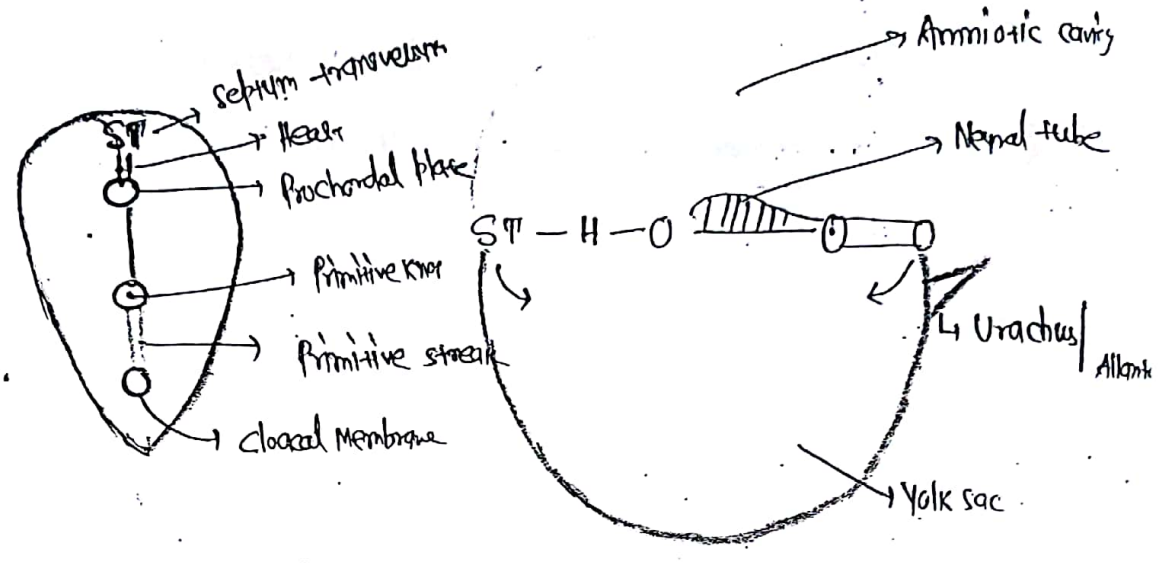 Septum transversum
ST
Heart
Prochordal plate
Primitive knot
Primitive streak
Cloacal Membrane
Amniotic cavity
Neural tube
ST – H – O
Urachus/
Yolk sac